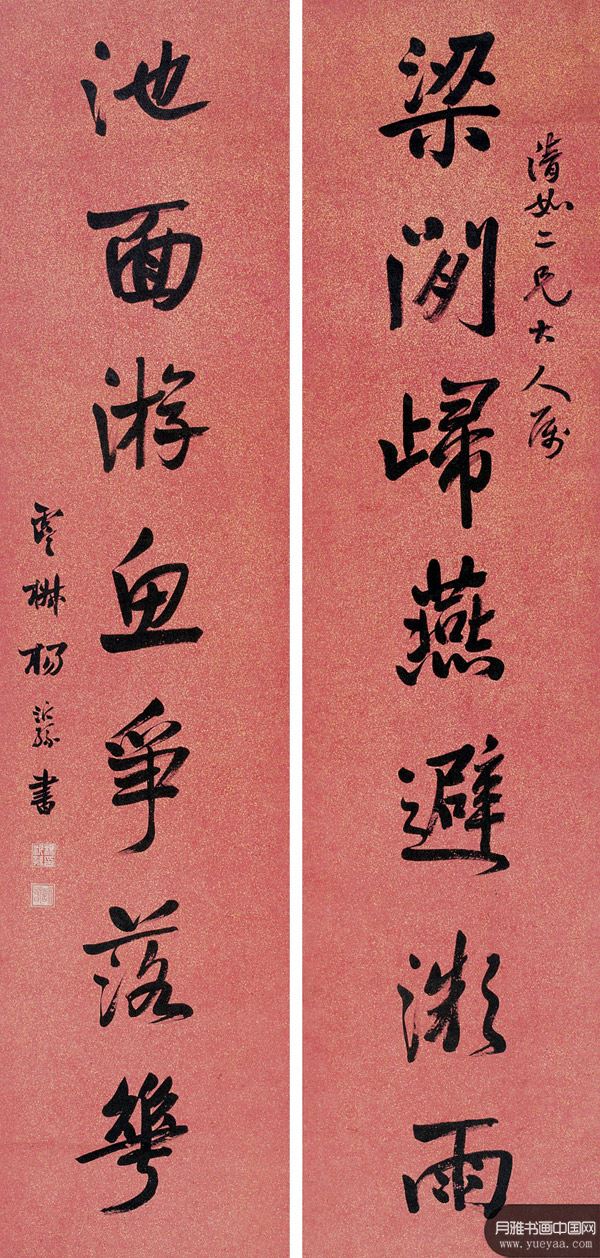 清如二兄大人属
梁閒歸燕避微雨
池面游魚爭落華
雲楊沂孫書
月雅书画中国网
www.yueyaa.com